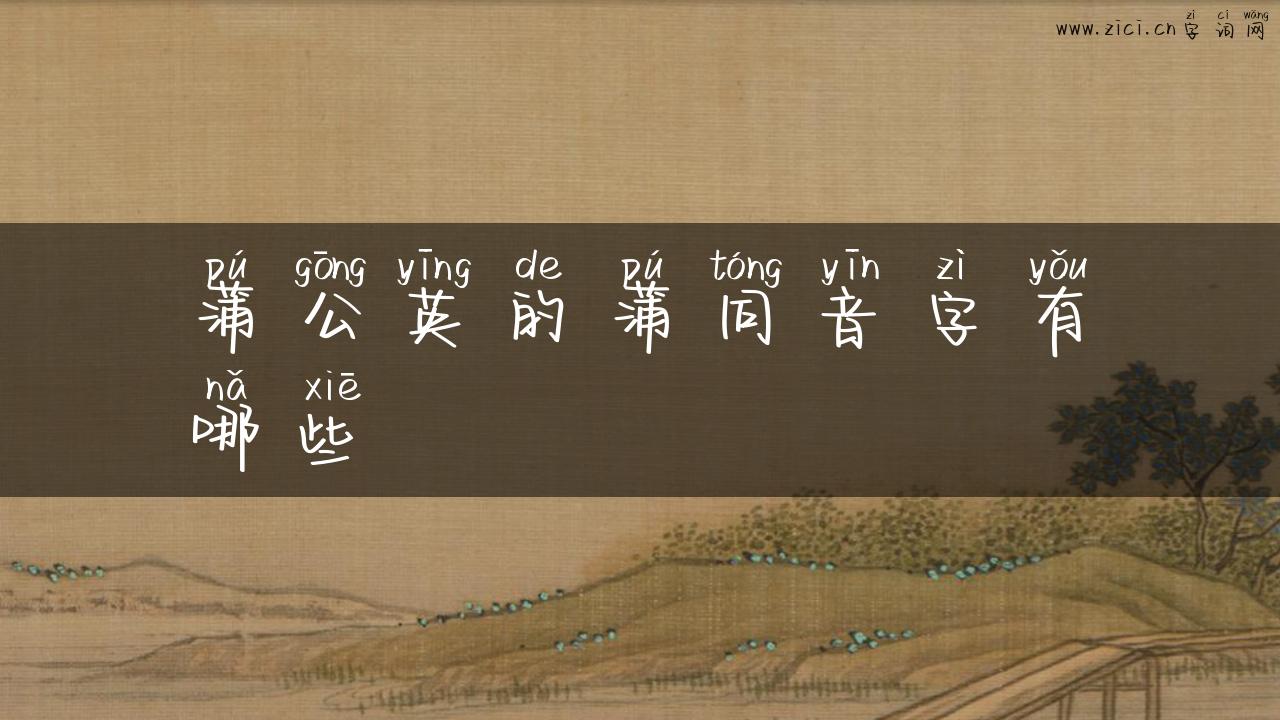 zì cí wǎng
www.zici.cn字词网
pú gōng yīng de pú tóng yīn zì yǒu
蒲公英的蒲同音字有
nǎ xiē
哪些